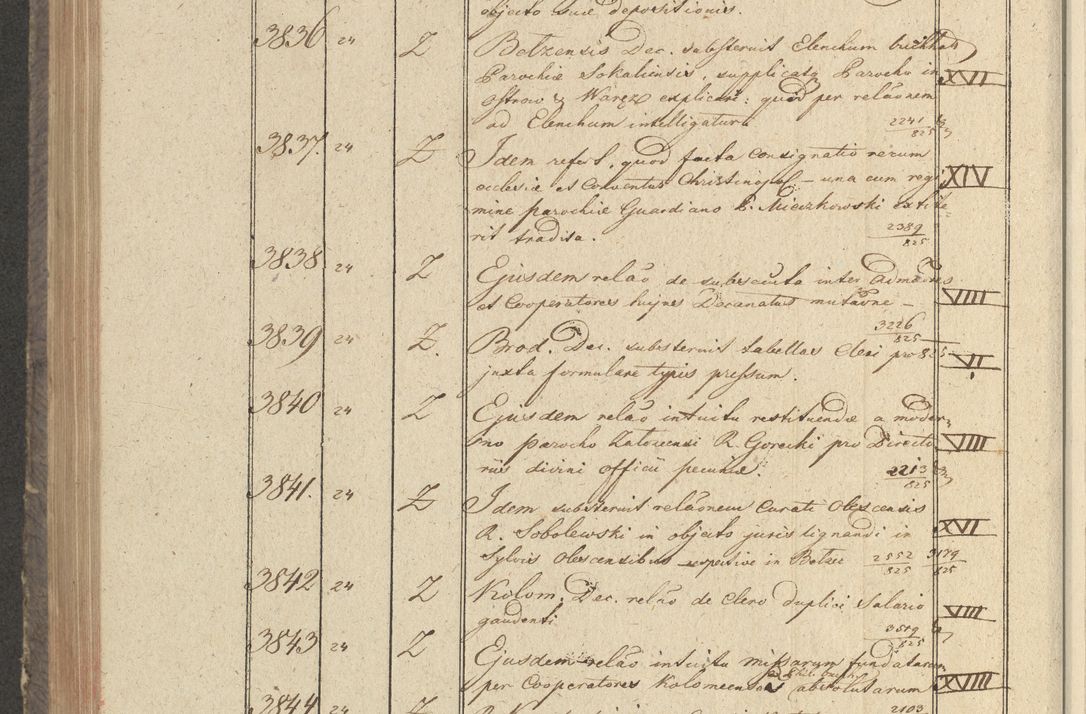 objecto suae depositionis.
3836 24 Z Belzensis Dec. substernit Elenchum
Parochiae Sokaliensis, supplicatq Parocho in XVI
Ostrow & Waręz explicari: quod per relãonem
ad Elenchum intelligatura 2241/825
3837. 24 Z Idem refert, quod facta Consignatio rerum
ecclesiae et Conventus Christinopol – una cum regi XIV
mine parochiae Guardiano P. Mieczkowski extite
rit tradita. 2389/825
3838 24 Z Ejusdem relão de subsecuta inter Admãres
et Cooperatores hujus Decanatus mutãone – VIII
3226/825
3839 24 Z. Brod. Dec. substernit tabellas Cleri pro 825 VI
juxta formulare typis pressum.
3840 24 Z Ejusdem relão intuitu restituendae a moder
no parocho Zalozensi R. Gorecki pro Directo VIII
riis divini officii pecuniae. 2213/825
3841. 24 Z Idem substernit relãonem Curati Olescensis
R. Sobolewski in objecto juris lignandi in XVI
Sylvis Olescensibus respective in Betzec 2552/825 3179/825
3842 24 Z Kolom. Dec. relão de Clero duplici Salario VIII
gaudenti 3519/825
3843 24 Z Ejusdem relão intuitu missarum fundatarum
per Cooperatores Kolomeenses absolutarum XVIII
3844 24 Z 2103